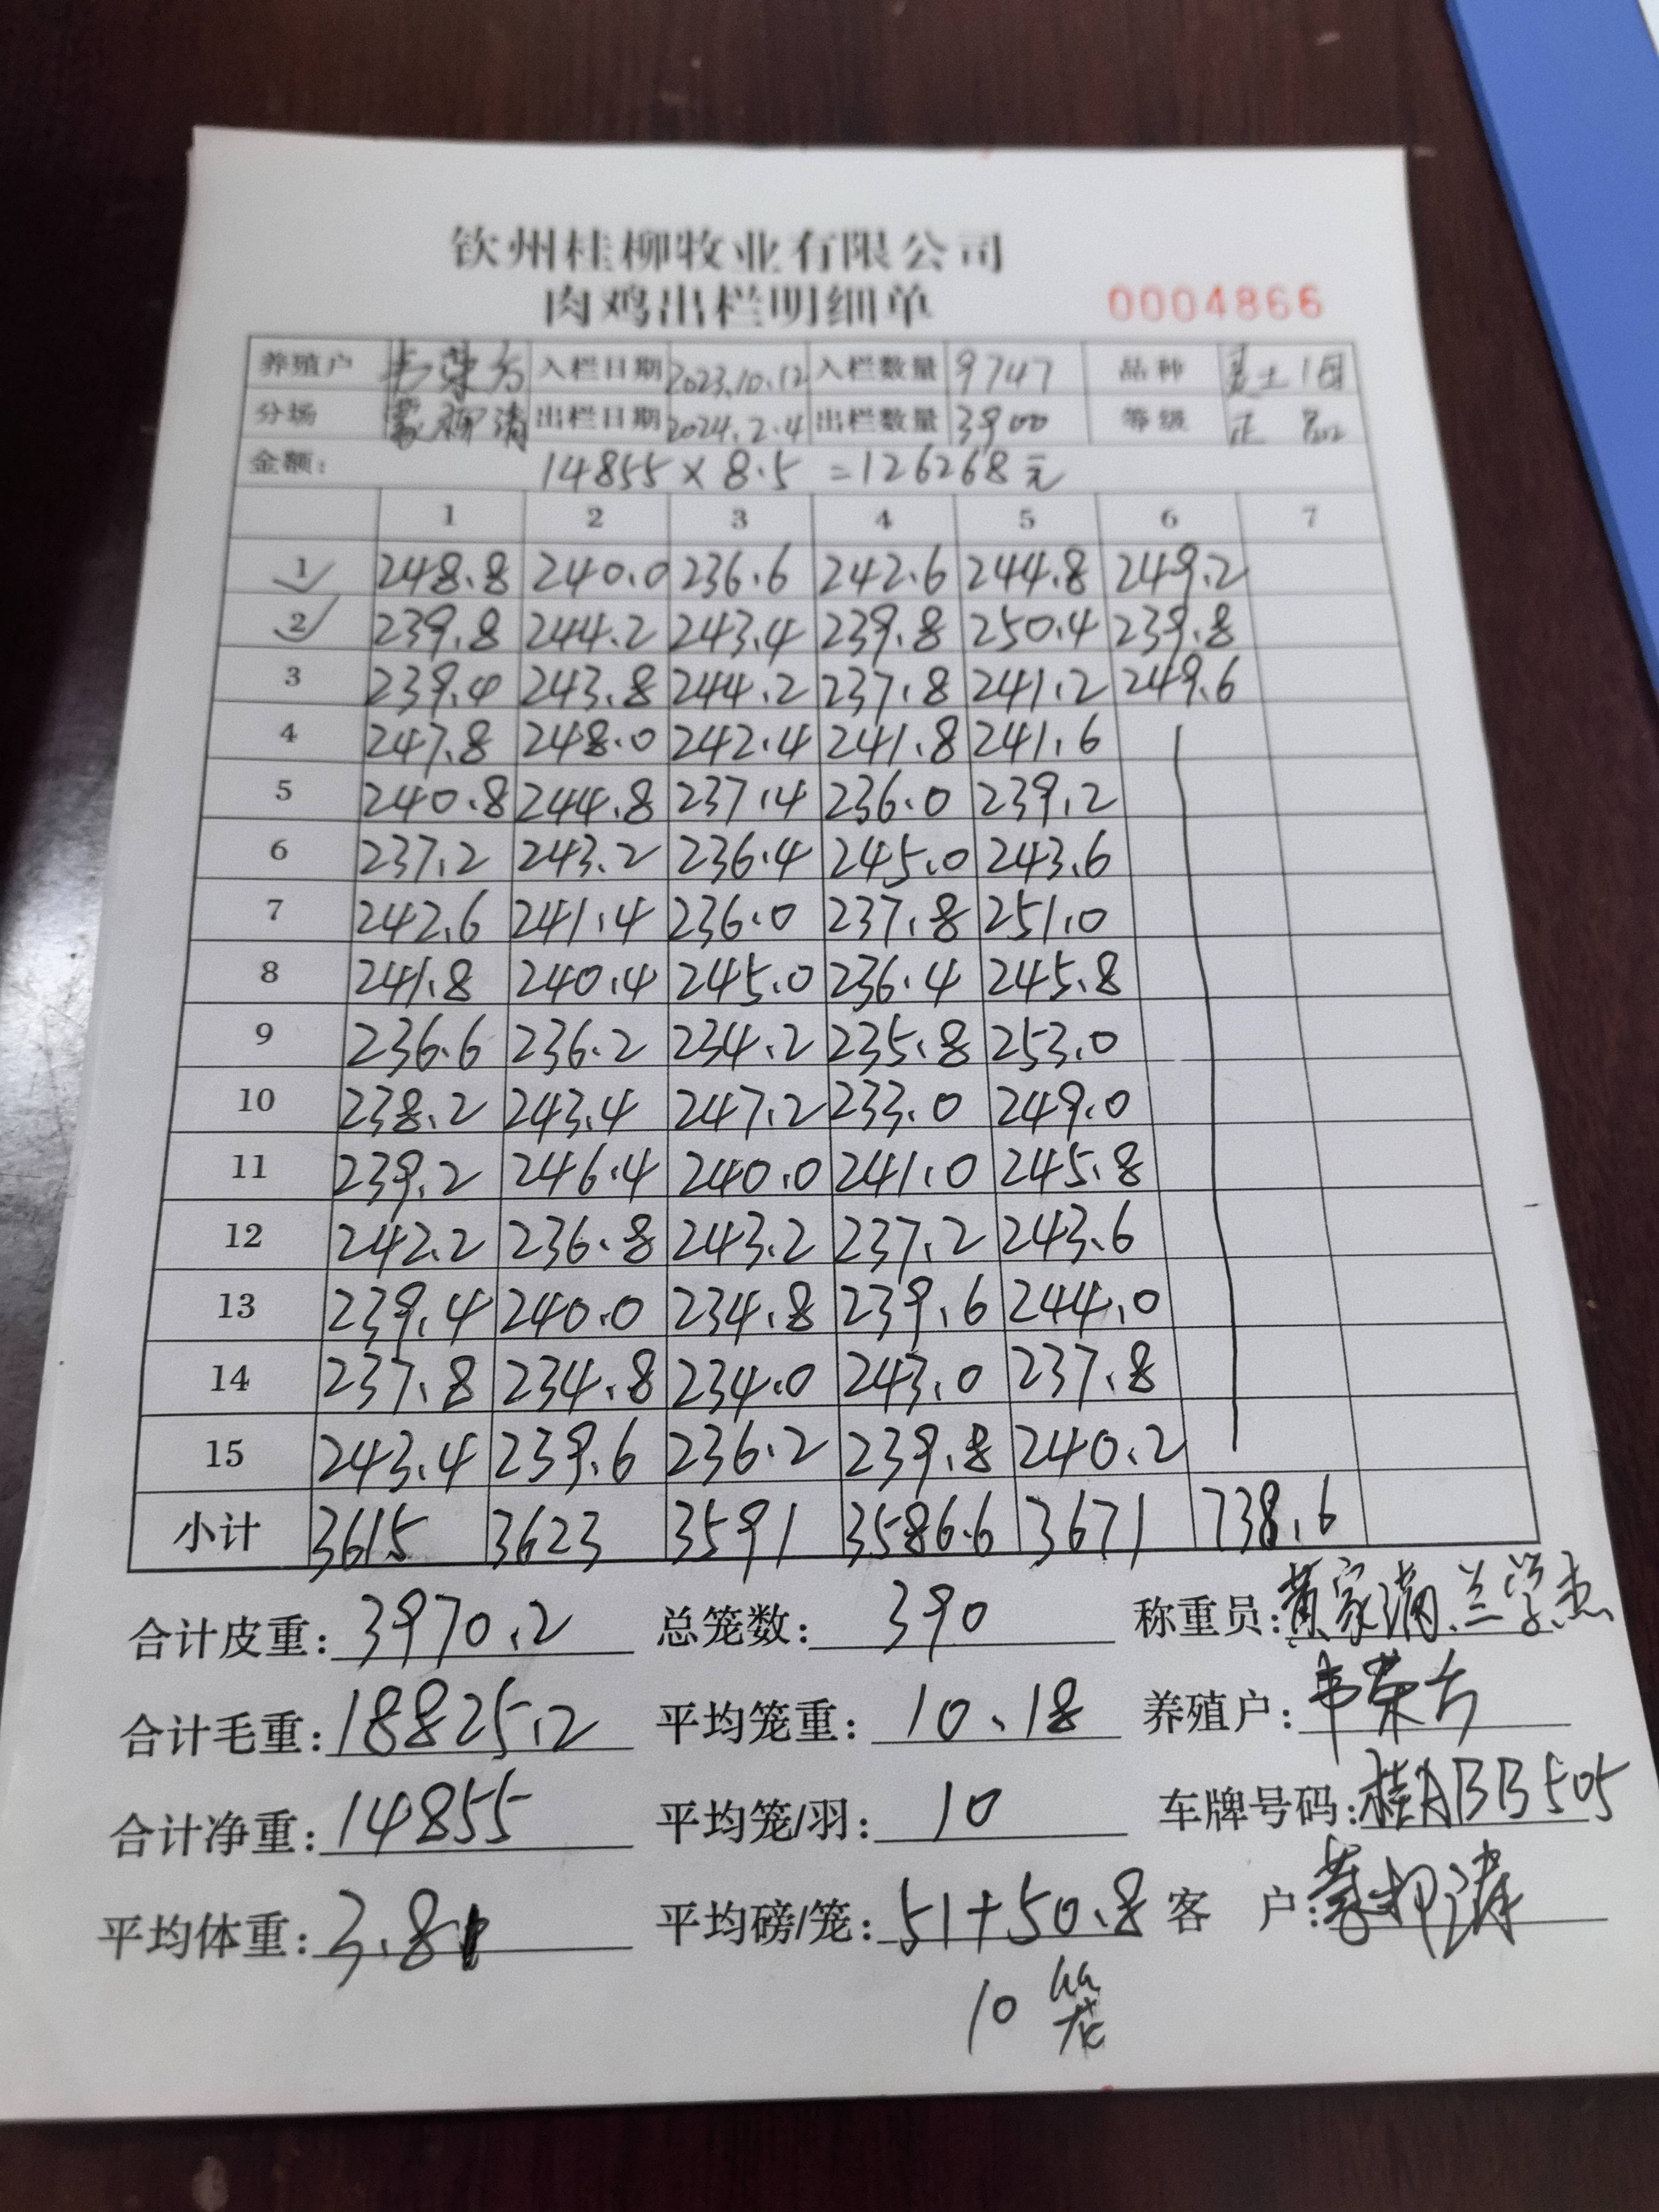 钦州桂柳牧业有限公司
肉鸡出栏明细单 0004866
养殖户 韦荣方 入栏日期 2023.10.12 入栏数量 9747 品种 土1母
分场 蒙柳清 出栏日期 2024.2.4 出栏数量 3900 等级 正品
金额: 14855×8.5=126268元
1 2 3 4 5 6 7
1 248.8 240.0 236.6 242.6 244.8 249.2
2 239.8 244.2 243.4 239.8 250.4 239.8
3 239.4 243.8 244.2 237.8 241.2 249.6
4 247.8 248.0 242.4 241.8 241.6
5 240.8 244.8 237.4 236.0 239.2
6 237.2 243.2 236.4 245.0 243.6
7 242.6 241.4 236.0 237.8 251.0
8 241.8 240.4 245.0 236.4 245.8
9 236.6 236.2 234.2 235.8 253.0
10 238.2 243.4 247.2 233.0 249.0
11 239.2 246.4 240.0 241.0 245.8
12 242.2 236.8 243.2 237.2 243.6
13 239.4 240.0 234.8 239.6 244.0
14 237.8 234.8 234.0 243.0 237.8
15 243.4 239.6 236.2 239.8 240.2
小计 3615 3623 3591 3586.6 3671 738.6
合计皮重: 3970.2 总笼数: 390 称重员: 黄家满.兰学杰
合计毛重: 18825.2 平均笼重: 10.18 养殖户: 韦荣方
合计净重: 14855 平均笼/羽: 10 车牌号码: 桂ABB505
平均体重: 3.81 平均磅/笼: 51+50.8 客 户: 蒙柳清
10笼